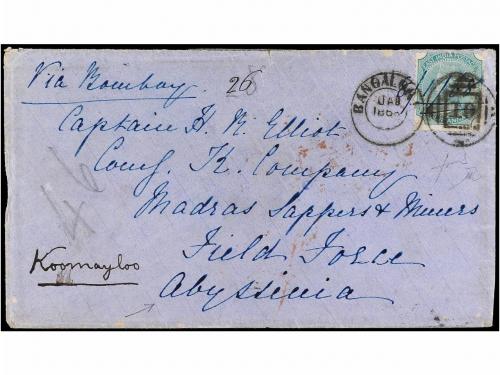 Via Bombay. 26
EAST INDIA POSTAGE
BANGALORE
JA 8
186
Captain H. N. Elliot
Comg. K. Company
Madras Sappers & Miners
Field Force
Koomayloo
Abyssinia